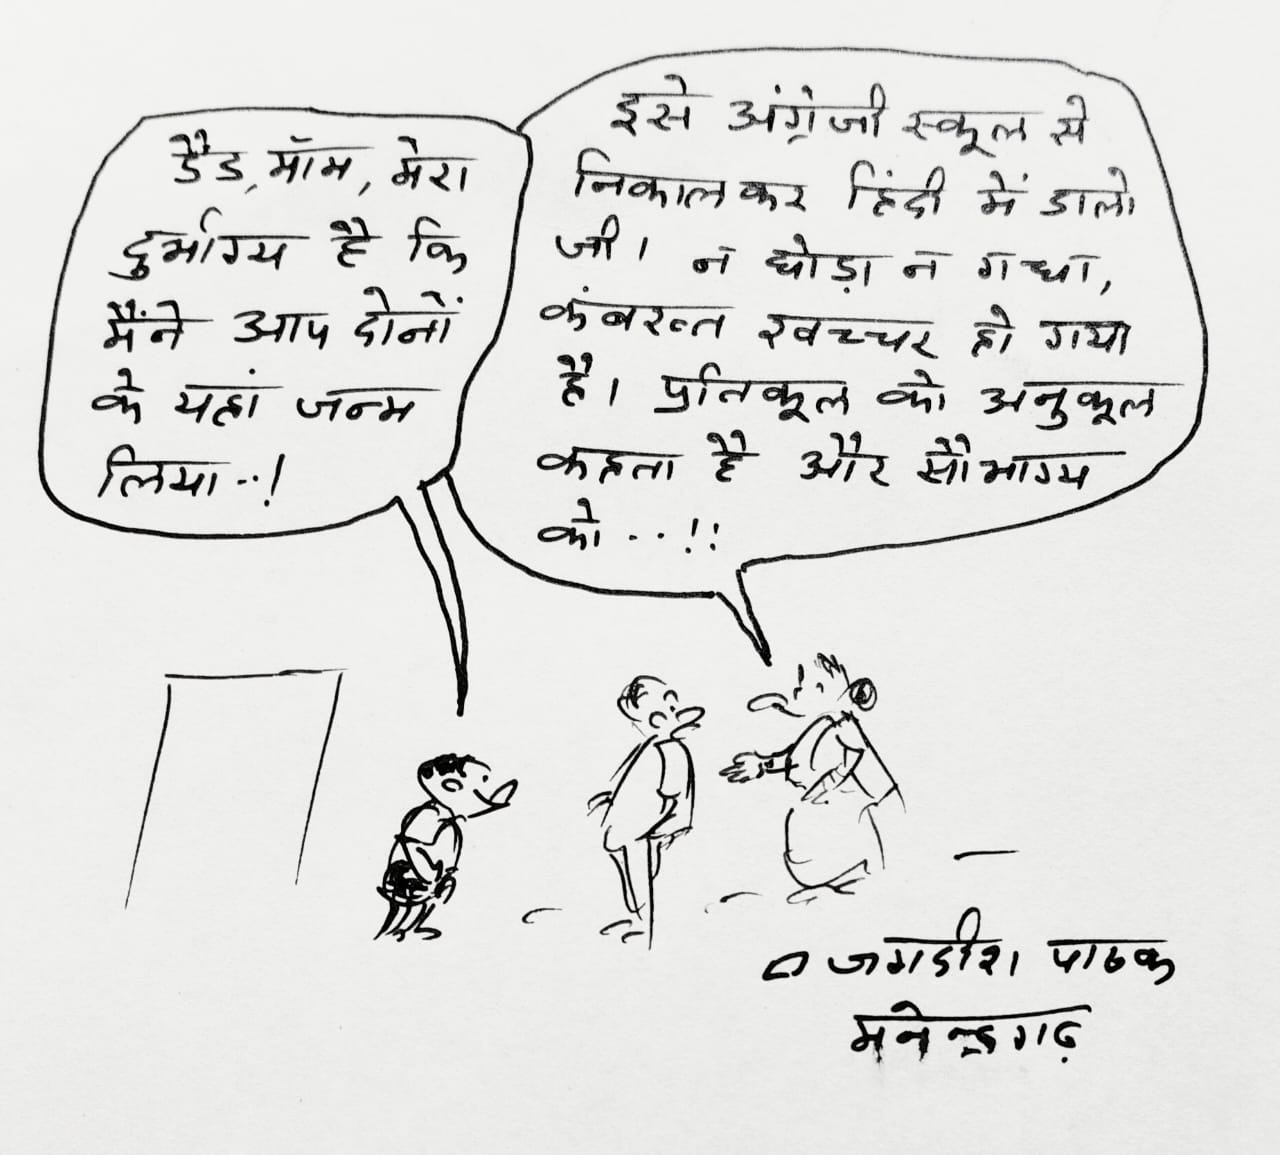 डैड, मॉम, मेरा
दुर्भाग्य है कि
मैंने आप दोनों
के यहां जन्म
लिया..!
इसे अंग्रेजी स्कूल से
निकालकर हिंदी में डालो
जी। न घोड़ा न गधा,
कंबख्त खच्चर हो गया
है। प्रतिकूल को अनुकूल
कहता है और सौभाग्य
को...!!
जगदीश पाठक
मनेन्द्रगढ़